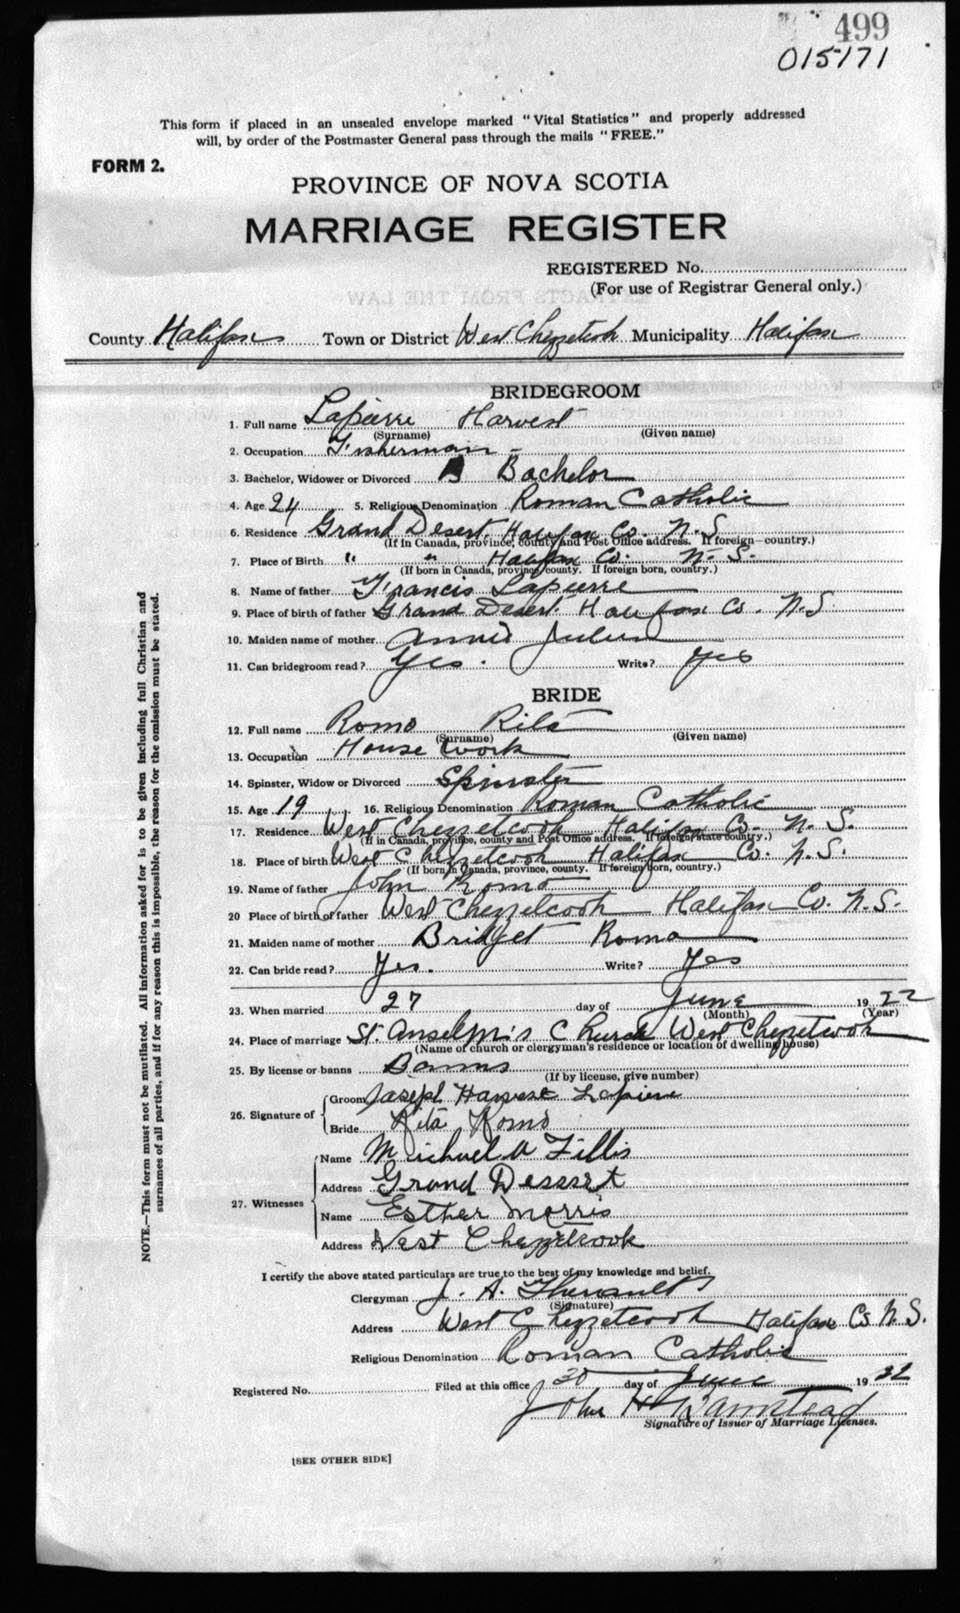 499
015171
This form if placed in an unsealed envelope marked "Vital Statistics" and properly addressed
will, by order of the Postmaster General pass through the mails "FREE."
FORM 2.
PROVINCE OF NOVA SCOTIA
MARRIAGE REGISTER
REGISTERED No.
(For use of Registrar General only.)
County Halifax Town or District West Chezzetcook Municipality Halifax
BRIDEGROOM
1. Full name Lapierre Harvest
(Surname) (Given name)
2. Occupation Fisherman
3. Bachelor, Widower or Divorced B Bachelor
4. Age 24 5. Religious Denomination Roman Catholic
6. Residence Grand Desert, Halifax Co. N.S
(If in Canada, province, county and Post Office address. If foreign country.)
7. Place of Birth " " Halifax Co. N.S.
(If born in Canada, province, county. If foreign born, country.)
8. Name of father Francis Lapierre
9. Place of birth of father Grand Desert. Halifax Co. N.S.
10. Maiden name of mother Annie Julien
11. Can bridegroom read? Yes. Write? Yes
BRIDE
12. Full name Romo Rita
(Surname) (Given name)
13. Occupation House Work
14. Spinster, Widow or Divorced Spinster
15. Age 19 16. Religious Denomination Roman Catholic
17. Residence West Chezzetcook Halifax Co. N.S.
(If in Canada, province, county and Post Office address. If foreign state country.)
18. Place of birth West Chezzetcook Halifax Co. N.S.
(If born in Canada, province, county. If foreign born, country.)
19. Name of father John Romo
20 Place of birth of father West Chezzetcook Halifax Co. N.S.
21. Maiden name of mother Bridget Romo
22. Can bride read? Yes. Write? Yes
23. When married 27 day of June 1922
(Month) (Year)
24. Place of marriage St. Anselm's Church West Chezzetcook
(Name of church or clergyman's residence or location of dwelling house)
25. By license or banns Banns
(If by license, give number)
26. Signature of
Groom Joseph Harvest Lapierre
Bride Rita Romo
27. Witnesses
Name Michael A Fillis
Address Grand Dessert
Name Esther Morris
Address West Chezzetcook
I certify the above stated particulars are true to the best of my knowledge and belief.
Clergyman J. A. Theriault
(Signature)
Address West Chezzetcook Halifax Co N.S.
Religious Denomination Roman Catholic
Registered No. Filed at this office 30 day of June 1932
John H Barnstead
Signature of Issuer of Marriage Licenses.
[SEE OTHER SIDE]
NOTE.—This form must not be mutilated. All information asked for is to be given including full Christian and
surnames of all parties, and if for any reason this is impossible, the reason for the omission must be stated.